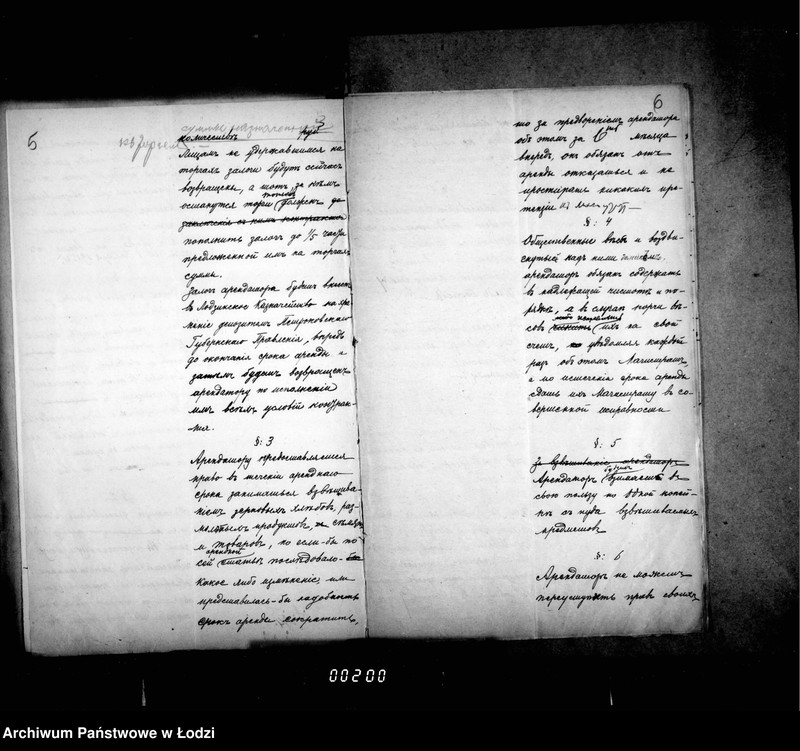 5
количествѣ руб
Лицамъ не удержавшимся на
торгахъ залоги будутъ сейчасъ
возвращены, а тотъ за кѣмъ
останутся торги долженъ до
заключенія съ нимъ контракта
пополнить залогъ до 1/5 части
предложенной имъ на торгахъ
суммы.
Залогъ арендатора будетъ внесенъ
въ Лодзинское Казначейство на хра-
неніе депозитъ Петроковскаго
Губернскаго Правленія, впредь
до окончанія срока аренды и
затѣмъ будетъ возвращенъ
арендатору по исполненіи
имъ всѣхъ условій контрак-
та.
§: 3
Арендатору предоставляется
право въ теченіи аренднаго
срока заниматься взвѣшива-
ніемъ зерновыхъ хлѣбовъ, раз-
молотыхъ продуктовъ,
и товаровъ, но если-бы по
сей арендной статьѣ послѣдовало-бы
какое либо измѣненіе, или
представилась-бы надобность
срокъ аренды сократить,
6
то за предвареніемъ арендатора
объ этомъ за мѣсяца
впередъ, онъ обязанъ отъ
аренды отказаться и не
простирать никакихъ пре-
тензій
§: 4
Общественные вѣсы и воздви-
гнутый надъ ними
арендаторъ обязанъ содержать
въ надлежащей чистотѣ и по-
рядкѣ, а въ случаѣ порчи вѣ-
совъ ихъ на свой
счетъ, уведомляя каждый
разъ объ этомъ Магистратъ,
а по истеченіи срока аренды
сдать ихъ Магистрату въ со-
вершенной исправности
§: 5
За взвѣшиваніе арендаторъ
Арендаторъ взимаетъ въ
свою пользу по одной копѣй-
кѣ съ пуда взвѣшиваемыхъ
предметовъ
§: 6
Арендаторъ не можетъ
переуступать правъ своихъ
00200
Archiwum Państwowe w Łodzi